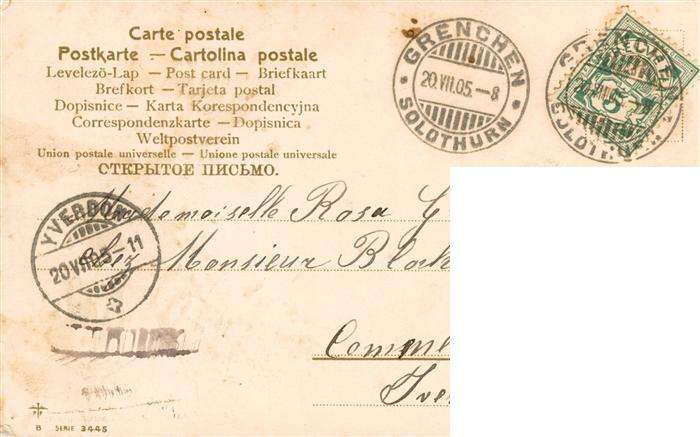 Carte postale
Postkarte — Cartolina postale
Levelezö-Lap — Post card — Briefkaart
Brefkort — Tarjeta postal
Dopisnice — Karta Korespondencyjna
Correspondenzkarte — Dopisnica
Weltpostverein
Union postale universelle — Unione postale universale
ОТКРЫТОЕ ПИСЬМО.
GRENCHEN
20.VII.05.—8
SOLOTHURN
GRENCHEN
SOLOTHURN
5
Mademoiselle Rosa G
chez Monsieur
YVERDON
20.VII.05—11
B SERIE 3445